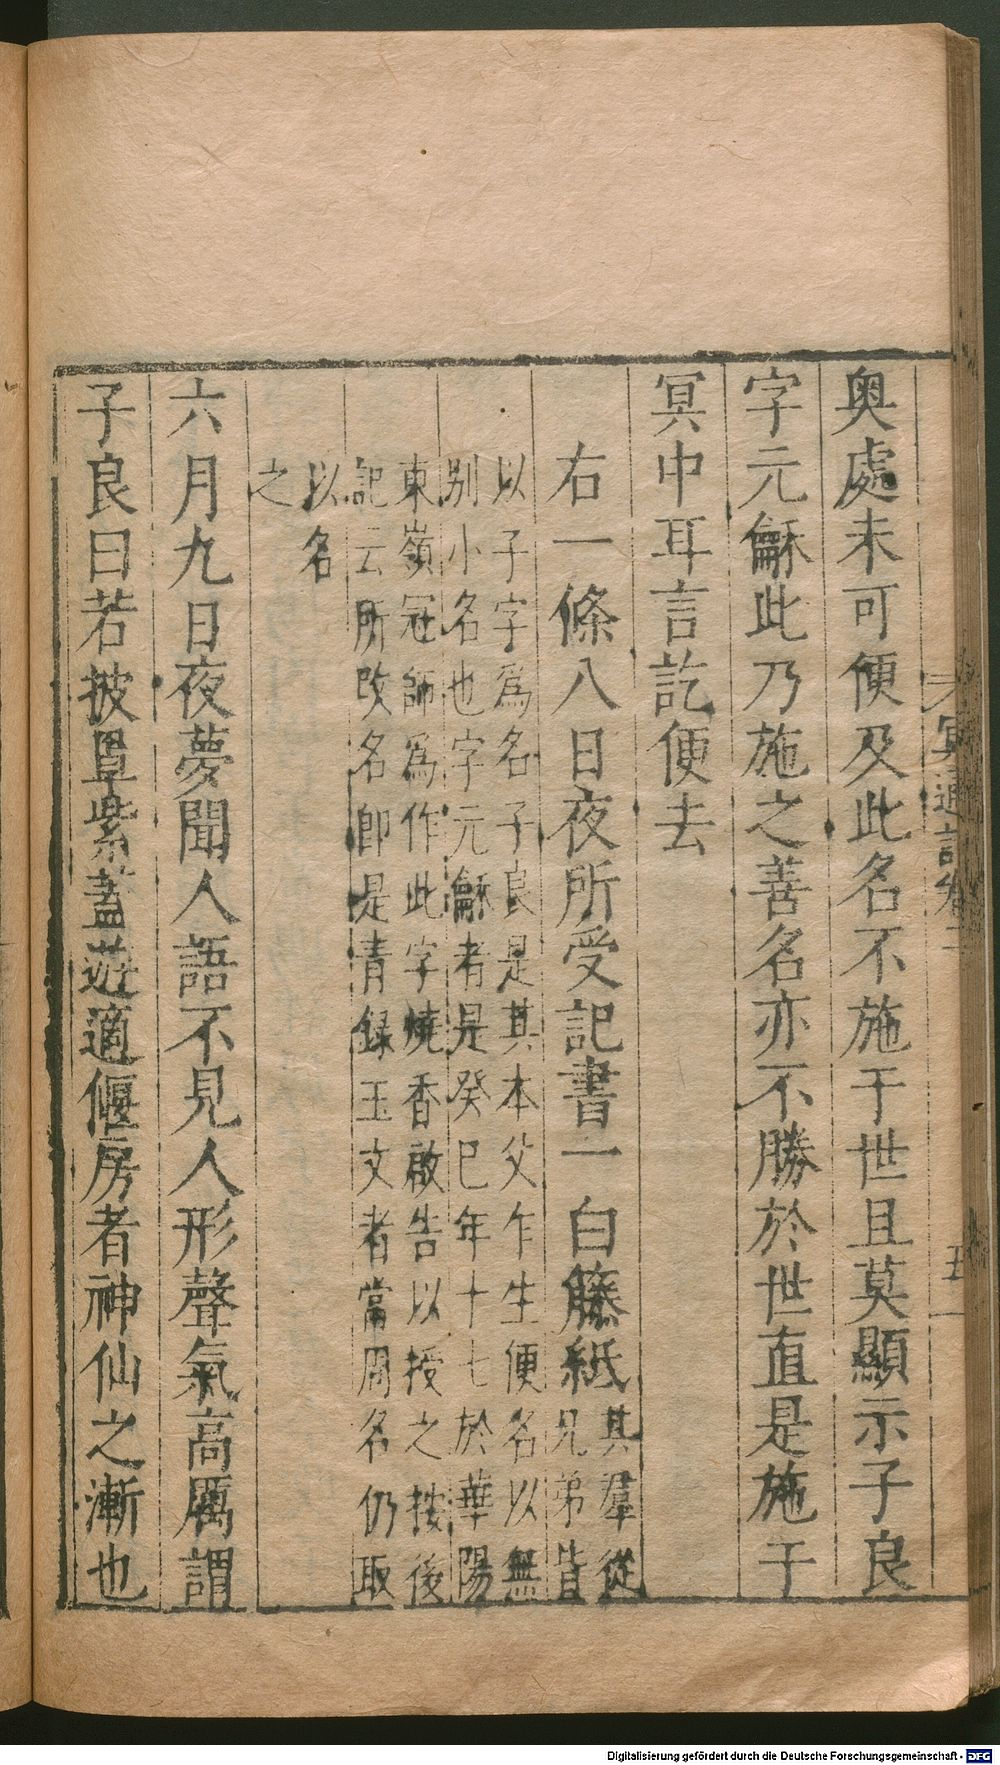 冥通記卷二 五
奧處未可便及此名不施于世且莫顯示子良
字元龢此乃施之善名亦不勝於世直是施于
冥中耳言訖便去
右一條八日夜所受記書一白籐紙其羣從
兄弟皆
以子字爲名子良是其本父乍生便名以無
别小名也字元龢者是癸巳年十七於華陽
東嶺冠師爲作此字燒香啟告以授之按後
記云所改名即是青録玉文者當周名仍取
以名
之
六月九日夜夢聞人語不見人形聲氣高厲謂
子良曰若披罩紫蓋遊適偃房者神仙之漸也
Digitalisierung gefördert durch die Deutsche Forschungsgemeinschaft - DFG